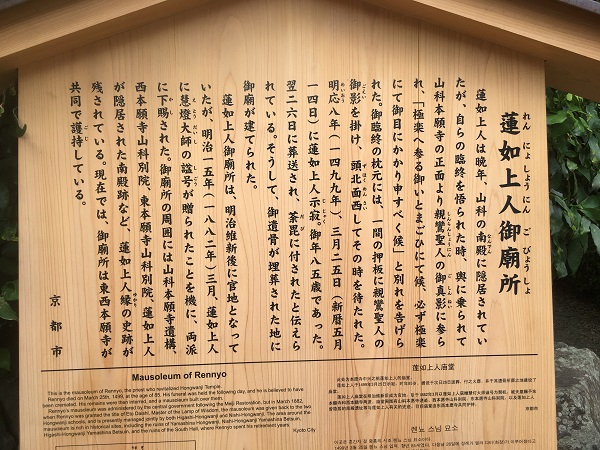 蓮如上人御廟所
れんにょしょうにんごびょうしょ
蓮如上人は晩年、山科の南殿に隠居されてい
たが、自らの臨終を悟られた時、輿に乗られて
山科本願寺の正面より親鸞聖人の御真影に参ら
れ、「極楽へ参る御いとまごひにて候、必ず極楽
にて御目にかかり申すべく候」と別れを告げら
れた。御臨終の枕元には、一間の押板に親鸞聖人の
御影を掛け、頭北面西してその時を待たれた。
明応八年(一四九九年)三月二五日(新暦五月
一四日)に蓮如上人示寂。御年八五歳であった。
翌二六日に葬送され、荼毘に付されたと伝えら
れている。そうして、御遺骨が埋葬された地に
御廟が建てられた。
蓮如上人御廟所は、明治維新後に官地となって
いたが、明治一五年(一八八二年)三月、蓮如上人
に慧燈大師の諡号が贈られたことを機に、両派
に下賜された。御廟所の周囲には山科本願寺遺構、
西本願寺山科別院、東本願寺山科別院、蓮如上人
が隠居された南殿跡など、蓮如上人縁の史跡が
残されている。現在では、御廟所は東西本願寺が
共同で護持している。
京都市
Mausoleum of Rennyo
This is the mausoleum of Rennyo, the priest who revitalized Hongwanji Temple.
Rennyo died on March 25th, 1499, at the age of 85. His funeral was held the following day, and he is believed to have
been cremated. His remains were then interred, and a mausoleum built over them.
Rennyo's mausoleum was administered by the central government following the Meiji Restoration, but in March 1882,
when Rennyo was granted the title of Eto Daishi, Master of the Lamp of Wisdom, the mausoleum was given back to the two
Hongwanji schools, and is presently managed jointly by both Higashi-Hongwanji and Nishi-Hongwanji. The area around the
mausoleum is rich in historical sites, including the ruins of Yamashina Hongwanji, Nishi-Hongwanji Yamashina Betsuin,
Higashi-Hongwanji Yamashina Betsuin, and the ruins of the South Hall, where Rennyo spent his retirement years.
Kyoto City
莲如上人庙堂
京都市
렌뇨 스님 묘소